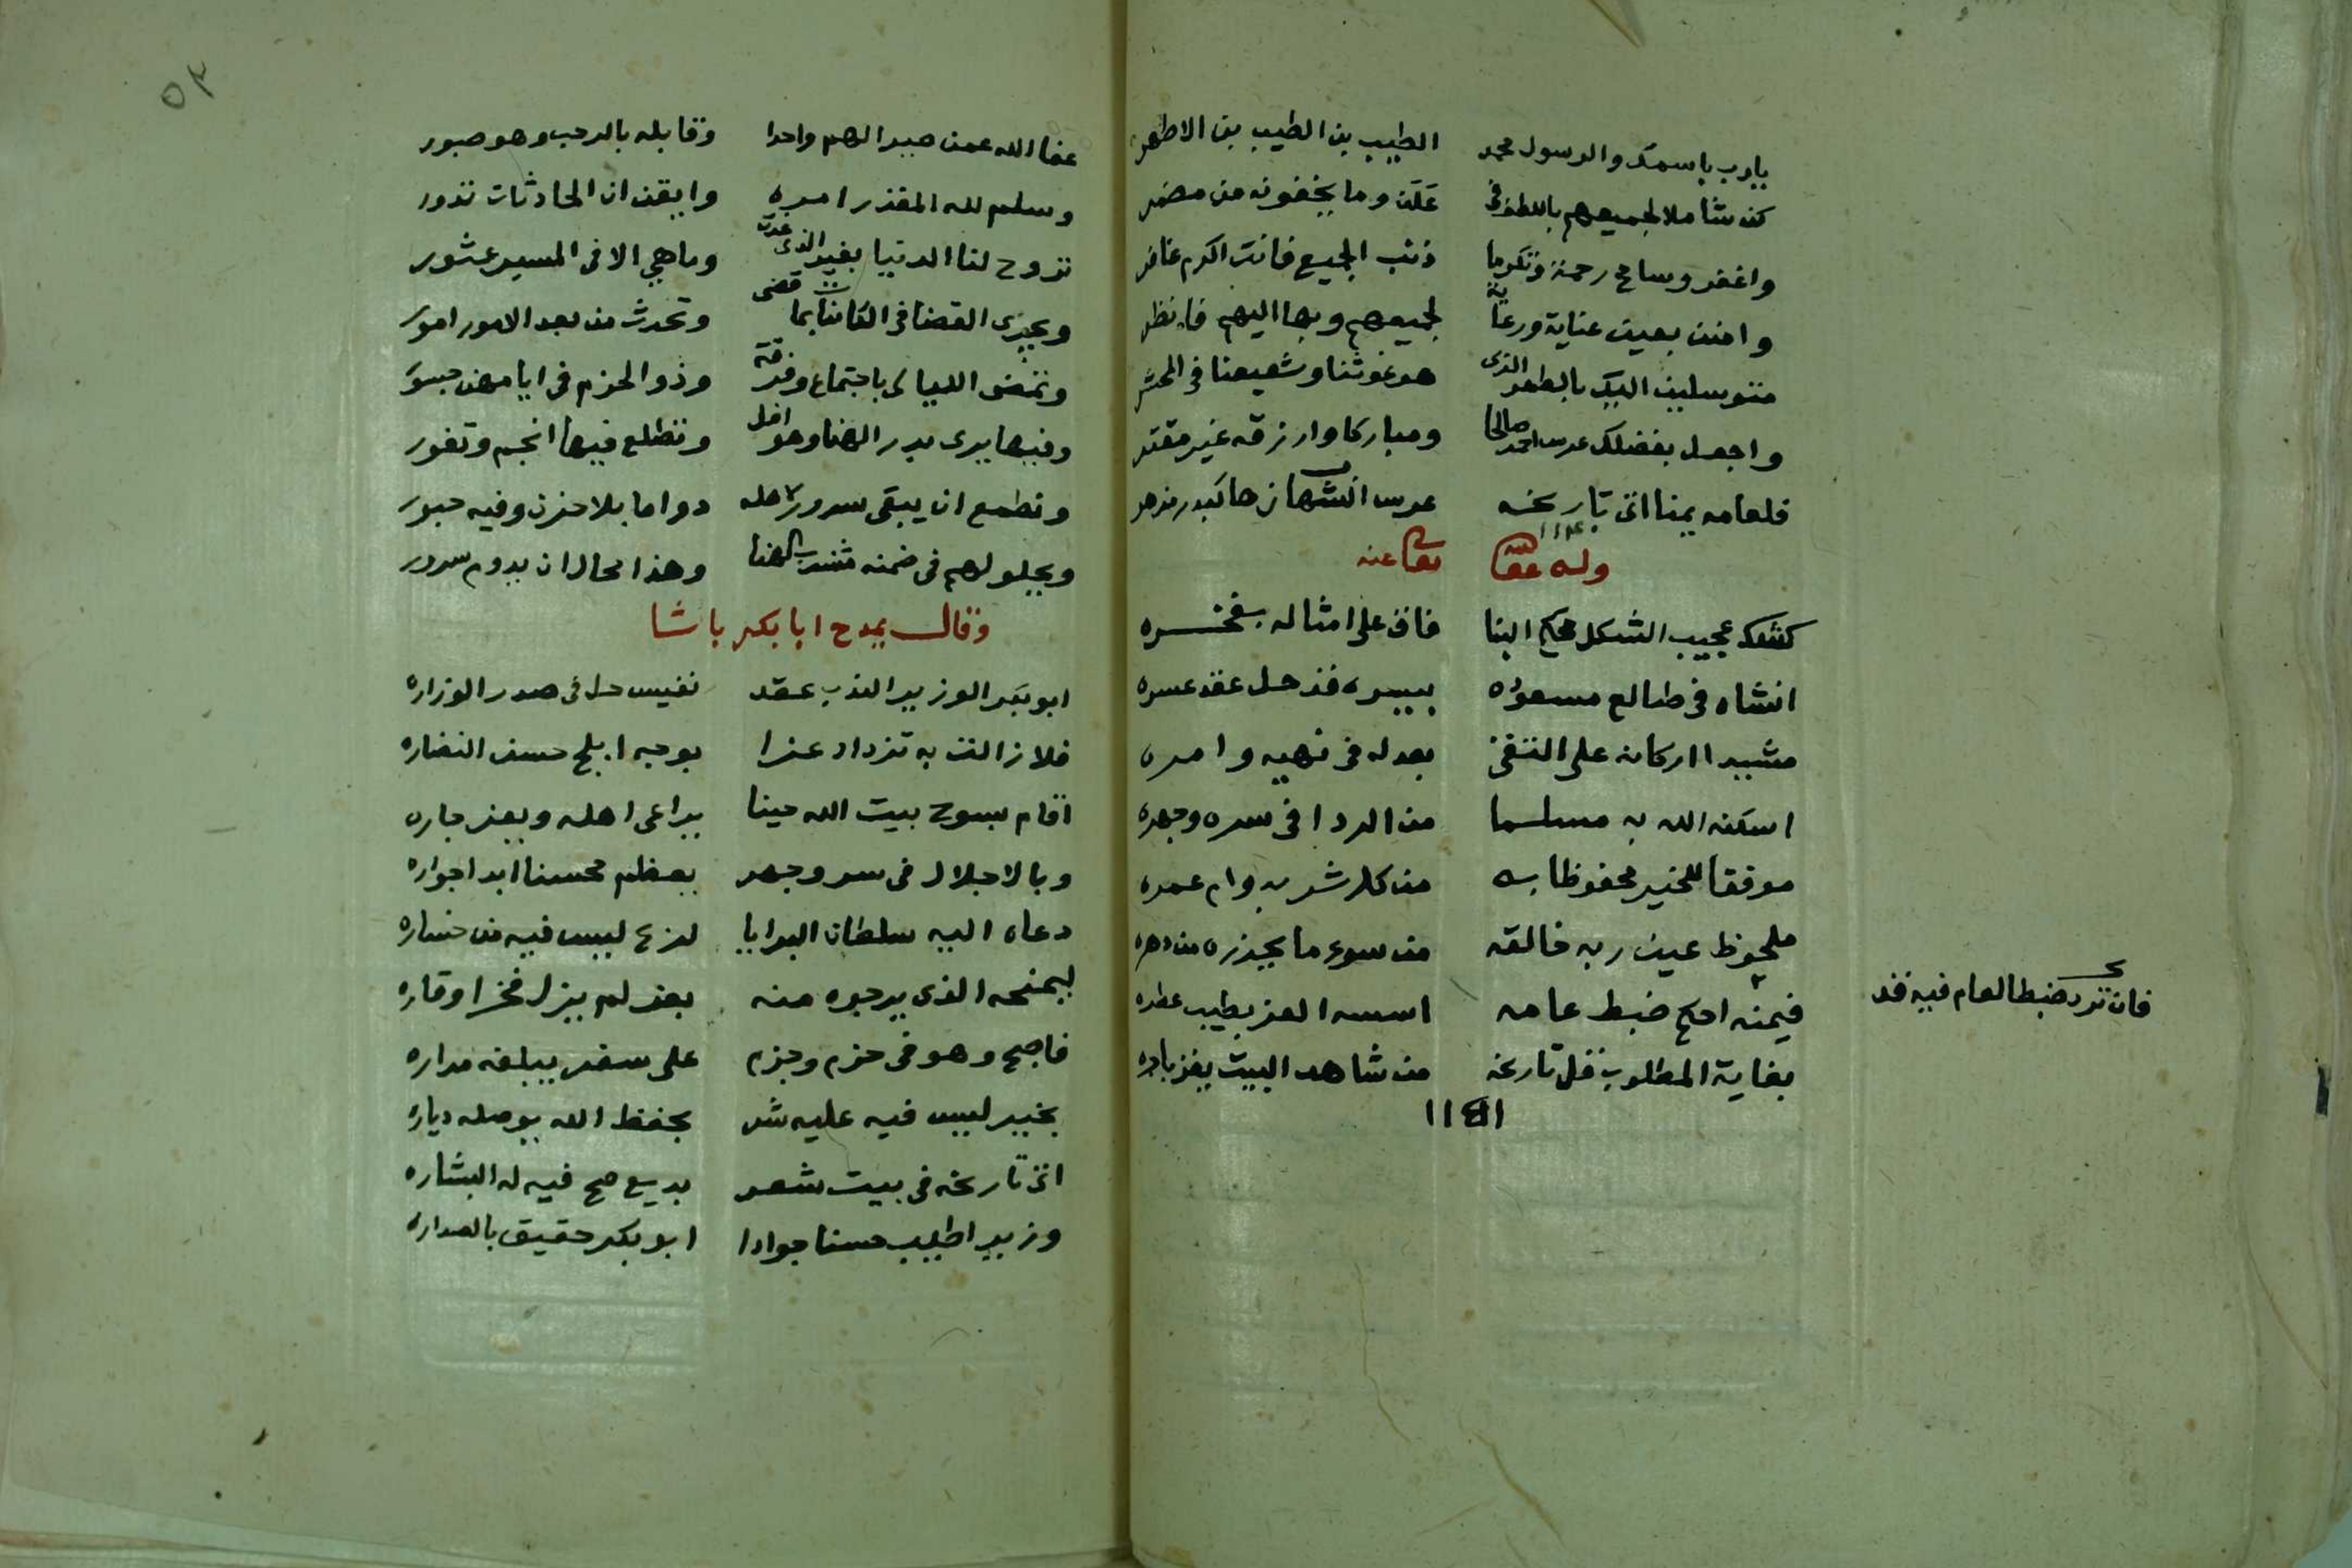 يارب باسمك والرسول محمد الطيب بن الطيب بن الاطهر
كن شاملا لجميعهم باللطف فى علن وما يخفونه من مضمر
واغفر وسامح رحمة وتكرما ذنب الجميع فانت اكرم غافر
وامنن بعين عناية ورعاية لجميعهم وبها اليهم فانظر
متوسلين اليك بالطهر الذى هو غوثنا وشفيعنا فى المحشر
واجعل بفضلك عرس احمد صالحا ومباركا وارزقه غير مقتر
فلعامه يمنا اتى تاريخه عرس الشهاب زها كبدر مزهر
١١٤٠
وله عفا الله تعالى عنه
كشك عجيب الشكل محكم البنا فاق على امثاله بفخره
انشاه فى طالع مسعوده بيسره قد حل عقد عسره
مشيدا اركانه على التقى بعدله فى نهيه وامره
اسكنه الله به مسلما من الردا فى سره وجهره
موفقا للخير محفوظا به من كل شر بدوام عمره
ملحوظ عين ربه خالقه من سوء ما يحذره من دهره
فيمنه احكم ضبط عامه اسسه العز بطيب عطره
فان ترد ضبط العام فيه فقد
بغاية المطلوب قل تاريخه من شاهد البيت يفز بادره
١١٤١
٥٣
عفا الله عمن صير الهم واحدا وقابله بالرحب وهو صبور
وسلم لله المقدر امره وايقن ان الحادثات تدور
تروح لنا الدنيا بغير الذى غدت وما هي الا فى المسير عثور
ويجرى القضا فى الكائنات بما قضى وتحدث من بعد الامور امور
وتمضى الليالى باجتماع وفرقة وذو الحزم فى ايامهن جسور
وفيها يرى بدر الهنا وهو افل وتطلع فيها انجم وتغور
وتطمع ان يبقى سرور لاهله دواما بلا حزن وفيه حبور
ويحلو لهم فى ضمنه مشرب الهنا وهذا محال ان يدوم سرور
وقال يمدح ابا بكر باشا
ابو بكر الوزير الندب عقد نفيس حل فى صدر الوزاره
فلا زالت به تزداد عزا بوجه ابلج حسن النضاره
اقام بسوح بيت الله حينا يراعى اهله ويعز جاره
وبالاجلال فى سر وجهر يعظم محسنا ابدا جواره
دعاه اليه سلطان البرايا لزع ليس فيه من خساره
ليمنحه الذى يرجوه منه بعز لم يزل فخرا وقاره
فاصبح وهو فى حزم وجزم على سفر يبلغه مداره
بخير ليس فيه عليه شر بحفظ الله يوصله دياره
اتى تاريخه فى بيت شعر بديع صح فيه له البشاره
وزير اطيب حسنا جوادا ابو بكر حقيق بالصداره